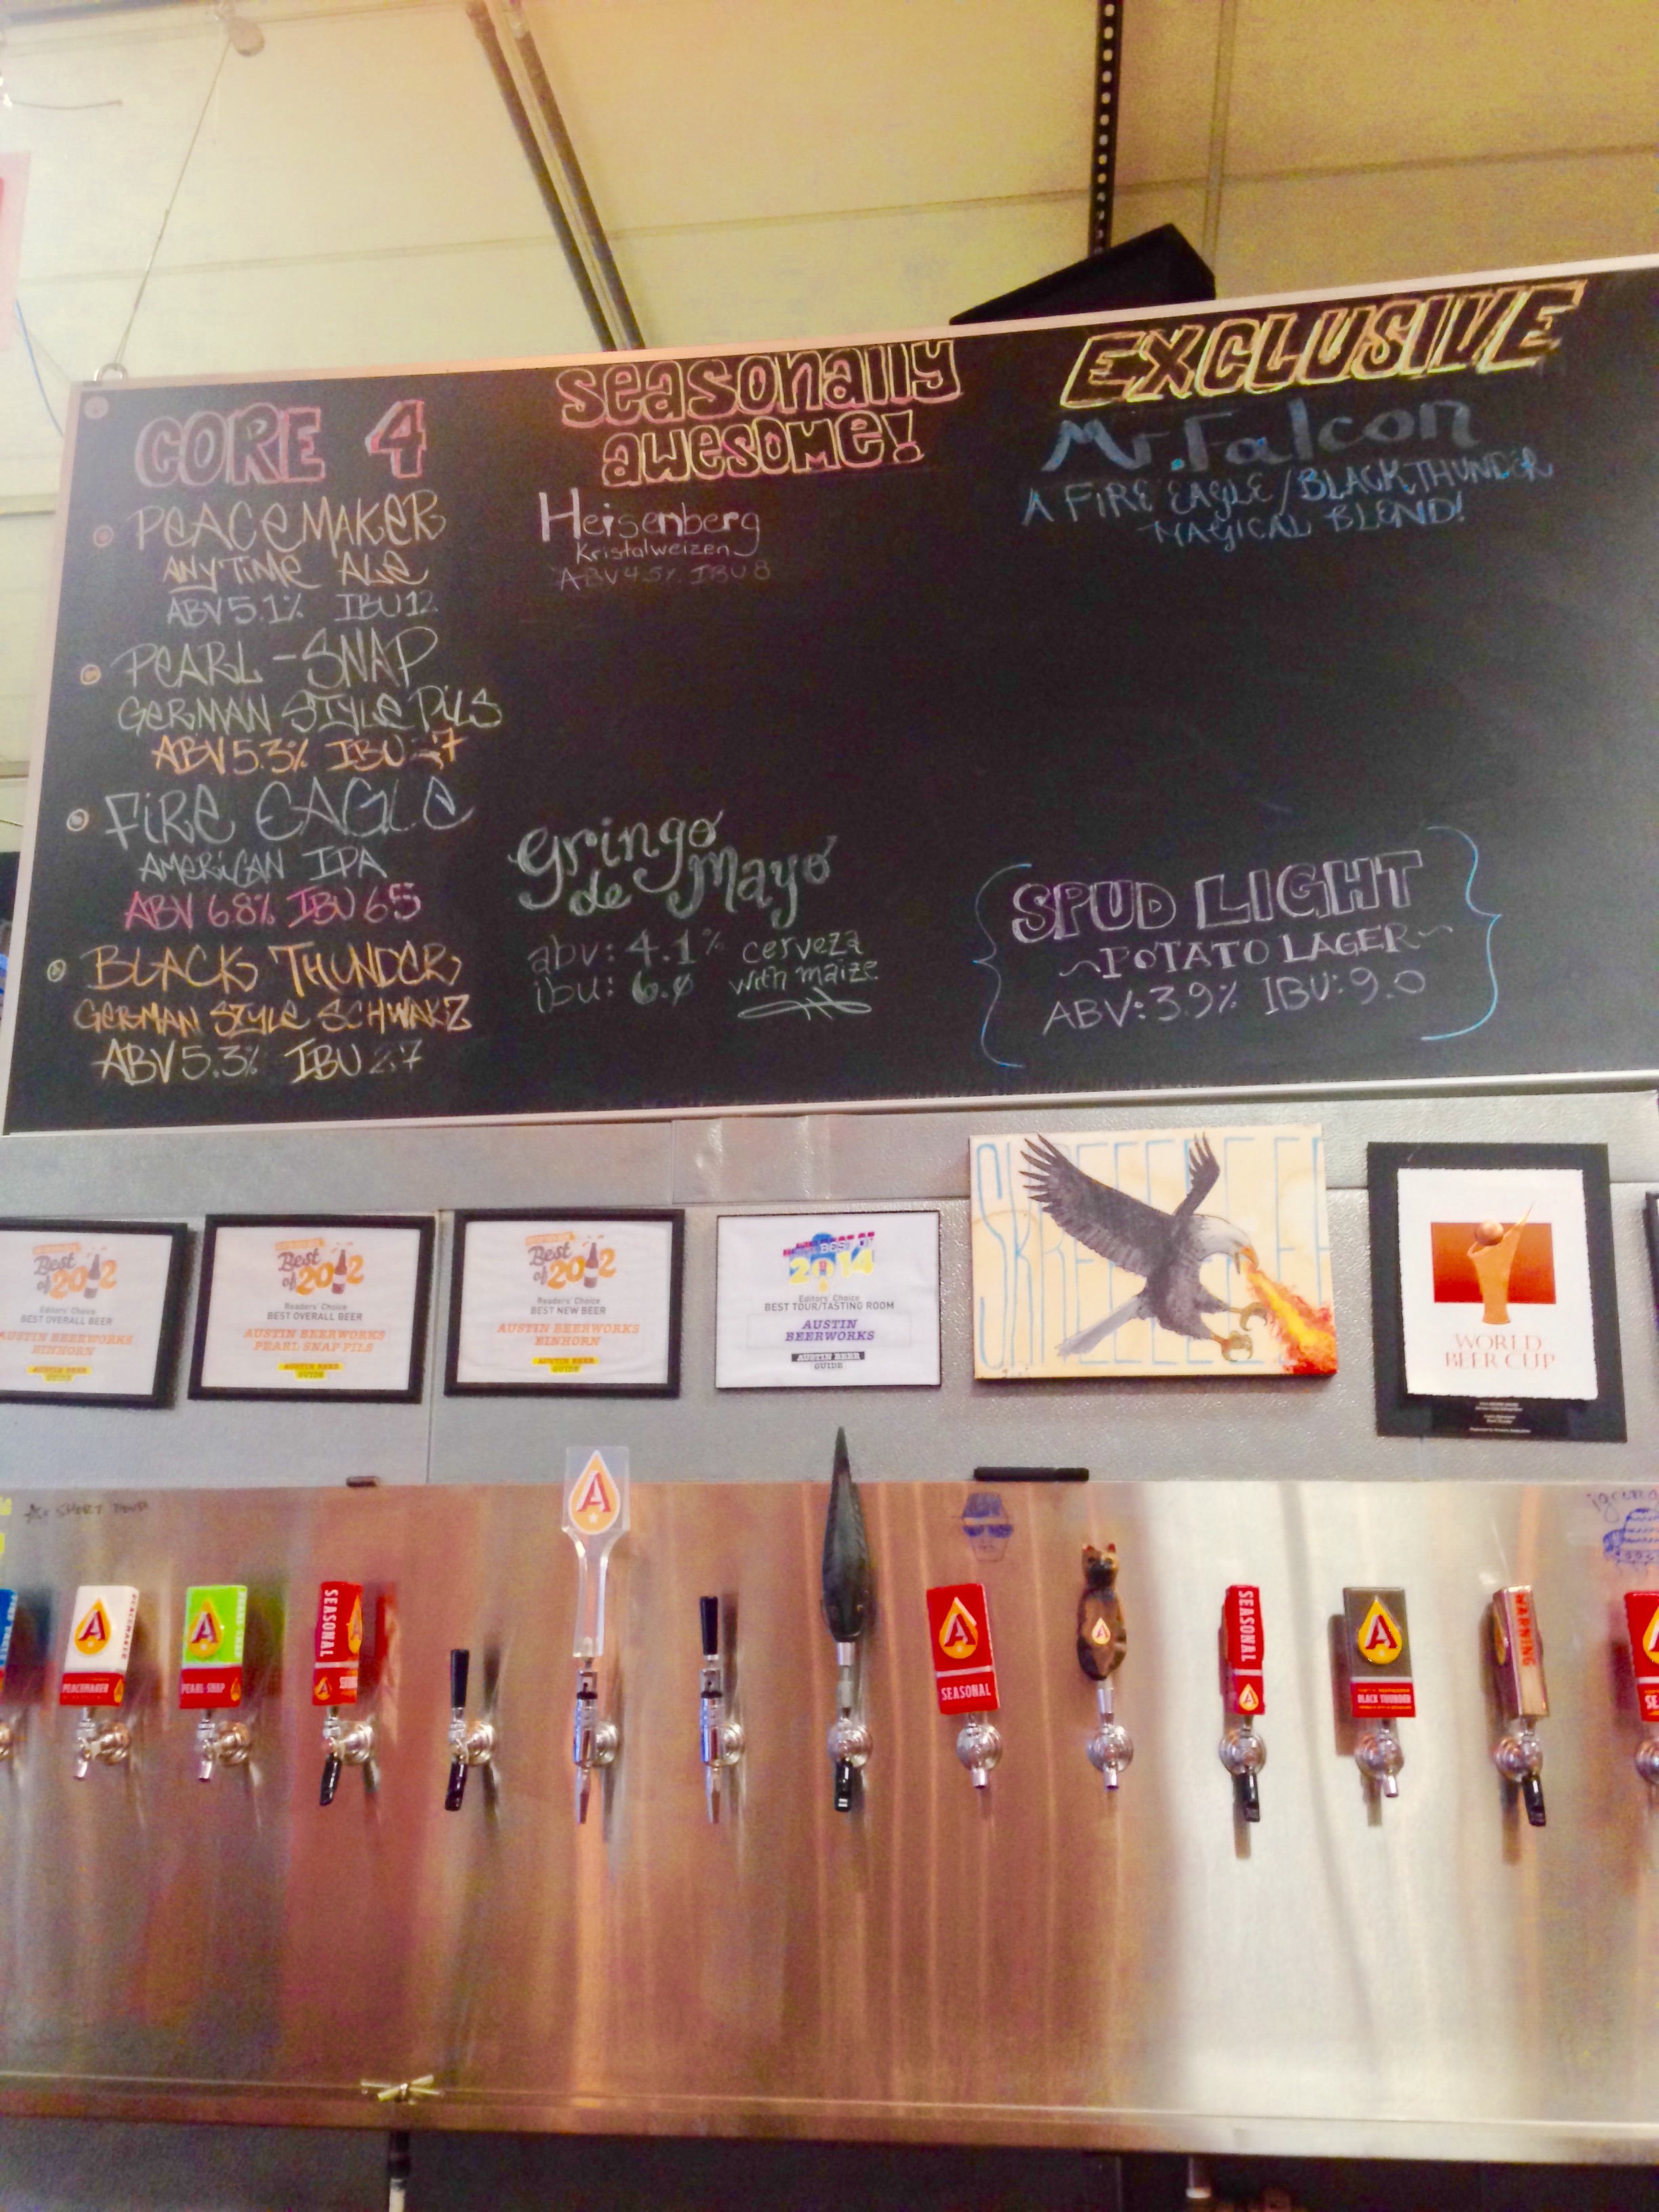 CORE 4
PEACEMAKER
ANYTIME ALE
ABV 5.1% IBU 12
PEARL-SNAP
GERMAN STYLE PILS
ABV 5.3% IBU
FIRE EAGLE
AMERICAN IPA
ABV 6.8% IBU 65
BLACK THUNDER
GERMAN STYLE SCHWARZ
ABV 5.3% IBU 27
seasonally
awesome!
Heisenberg
Kristalweizen
ABV 4.5% IBU 8
Gringo
de Mayo
abv: 4.1% cerveza
ibu: 6.0 with maize
EXCLUSIVE
Mr. Falcon
A FIRE EAGLE/BLACK THUNDER
MAGICAL BLEND!
SPUD LIGHT
~POTATO LAGER~
ABV: 3.9% IBU: 9.0
Best
of 2012
Editors' Choice
BEST OVERALL BEER
AUSTIN BEERWORKS
EINHORN
AUSTIN BEER
GUIDE
Best
of 2012
Readers' Choice
BEST OVERALL BEER
AUSTIN BEERWORKS
PEARL SNAP PILS
AUSTIN BEER
GUIDE
Best
of 2012
Readers' Choice
BEST NEW BEER
AUSTIN BEERWORKS
EINHORN
AUSTIN BEER
GUIDE
BEST OF
2014
Editors' Choice
BEST TOUR/TASTING ROOM
AUSTIN
BEERWORKS
AUSTIN BEER
GUIDE
SKREEEEEEE
WORLD
BEER CUP
A
PEACEMAKER
PEACEMAKER
A
PEARL-SNAP
SEASONAL
A
A
SEASONAL
A
SEASONAL
A
BLACK THUNDER
WARNING